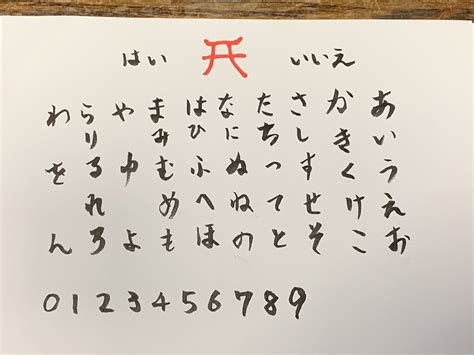 はい いいえ
あいうえお
かきくけこ
さしすせそ
たちつてと
なにぬねの
はひふへほ
まみむめも
やゆよ
らりるれろ
わをん
0 1 2 3 4 5 6 7 8 9